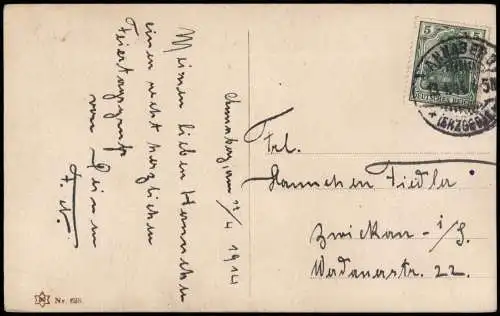 Meinen lieben Hannchen
einen recht herzlichen
Feiertagsgruß
von Deinem
Annaberg, am 11/4 1914
5
DEUTSCHES REICH
ANNABERG
(ERZGEB.)
Frl.
Hannchen Fiedler
Zwickau - i/S.
Werdauerstr. 22.
Nr. 628.